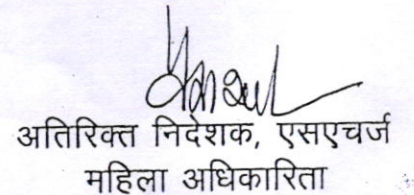 अतिरिक्त निदेशक, एसएचर्ज
महिला अधिकारिता